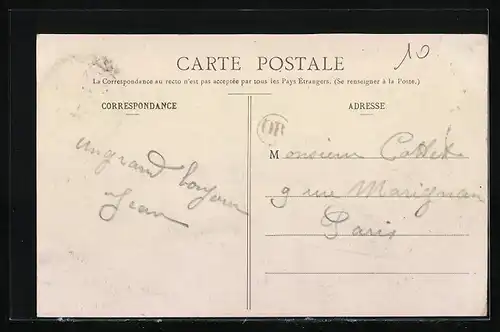 CARTE POSTALE
10
La Correspondance au recto n'est pas acceptée par tous les Pays Étrangers. (Se renseigner à la Poste.)
CORRESPONDANCE
un grand bonjour
Jean
ADRESSE
OR
Monsieur
9 rue Marignan
Paris